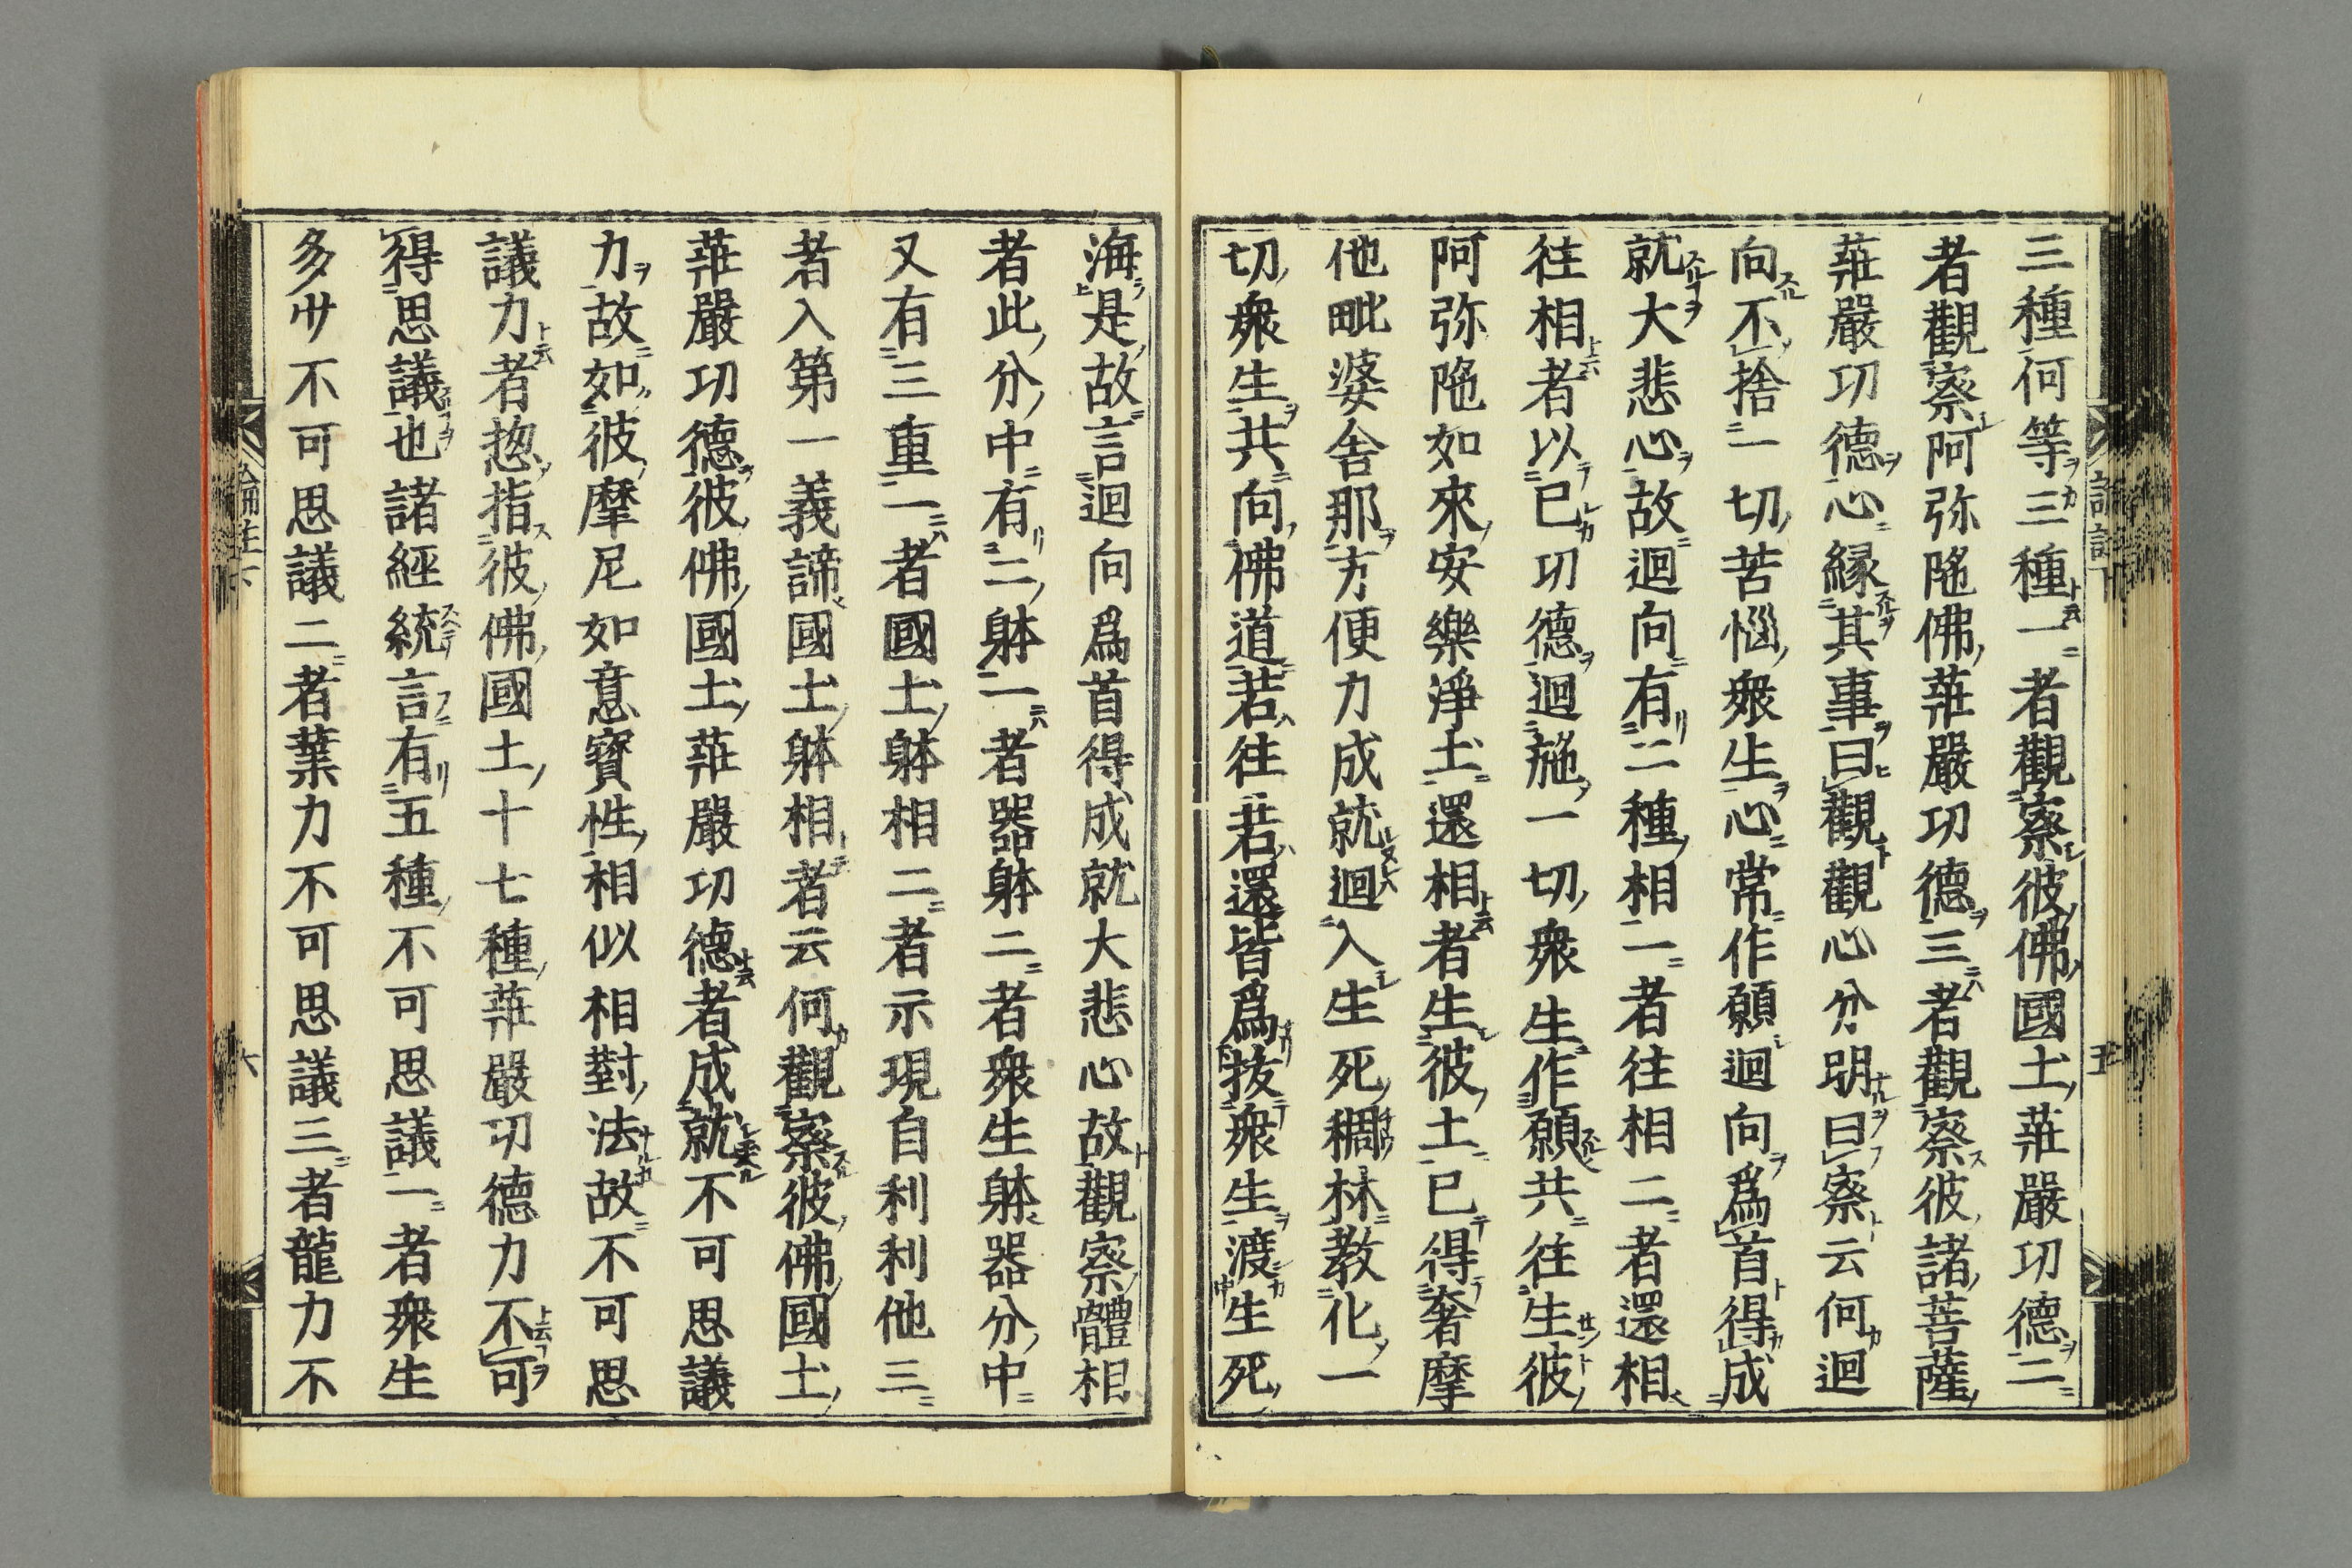 三種何等三種一者觀察彼佛國土莊嚴功德二
者觀察阿弥陁佛莊嚴功德三者觀察彼諸菩薩
莊嚴功德心縁其事曰觀觀心分明曰察云何迴
向不捨一切苦惱衆生心常作願迴向爲首得成
就大悲心故迴向有二種相一者往相二者還相
往相者以已功德迴施一切衆生作願共往生彼
阿弥陁如來安樂淨土還相者生彼土已得奢摩
他毗婆舍那方便力成就迴入生死稠林教化一
切衆生共向佛道若往若還皆爲拔衆生渡生死
海是故言迴向爲首得成就大悲心故觀察體相
者此分中有二躰一者器躰二者衆生躰器分中
又有三重一者國土躰相二者示現自利利他三
者入第一義諦國土躰相者云何觀察彼佛國土
莊嚴功德彼佛國土莊嚴功德者成就不可思議
力故如彼摩尼如意寶性相似相對法故不可思
議力者揔指彼佛國土十七種莊嚴功德力不可
得思議也諸經統言有五種不可思議一者衆生
多少不可思議二者業力不可思議三者龍力不
論註下
六
五